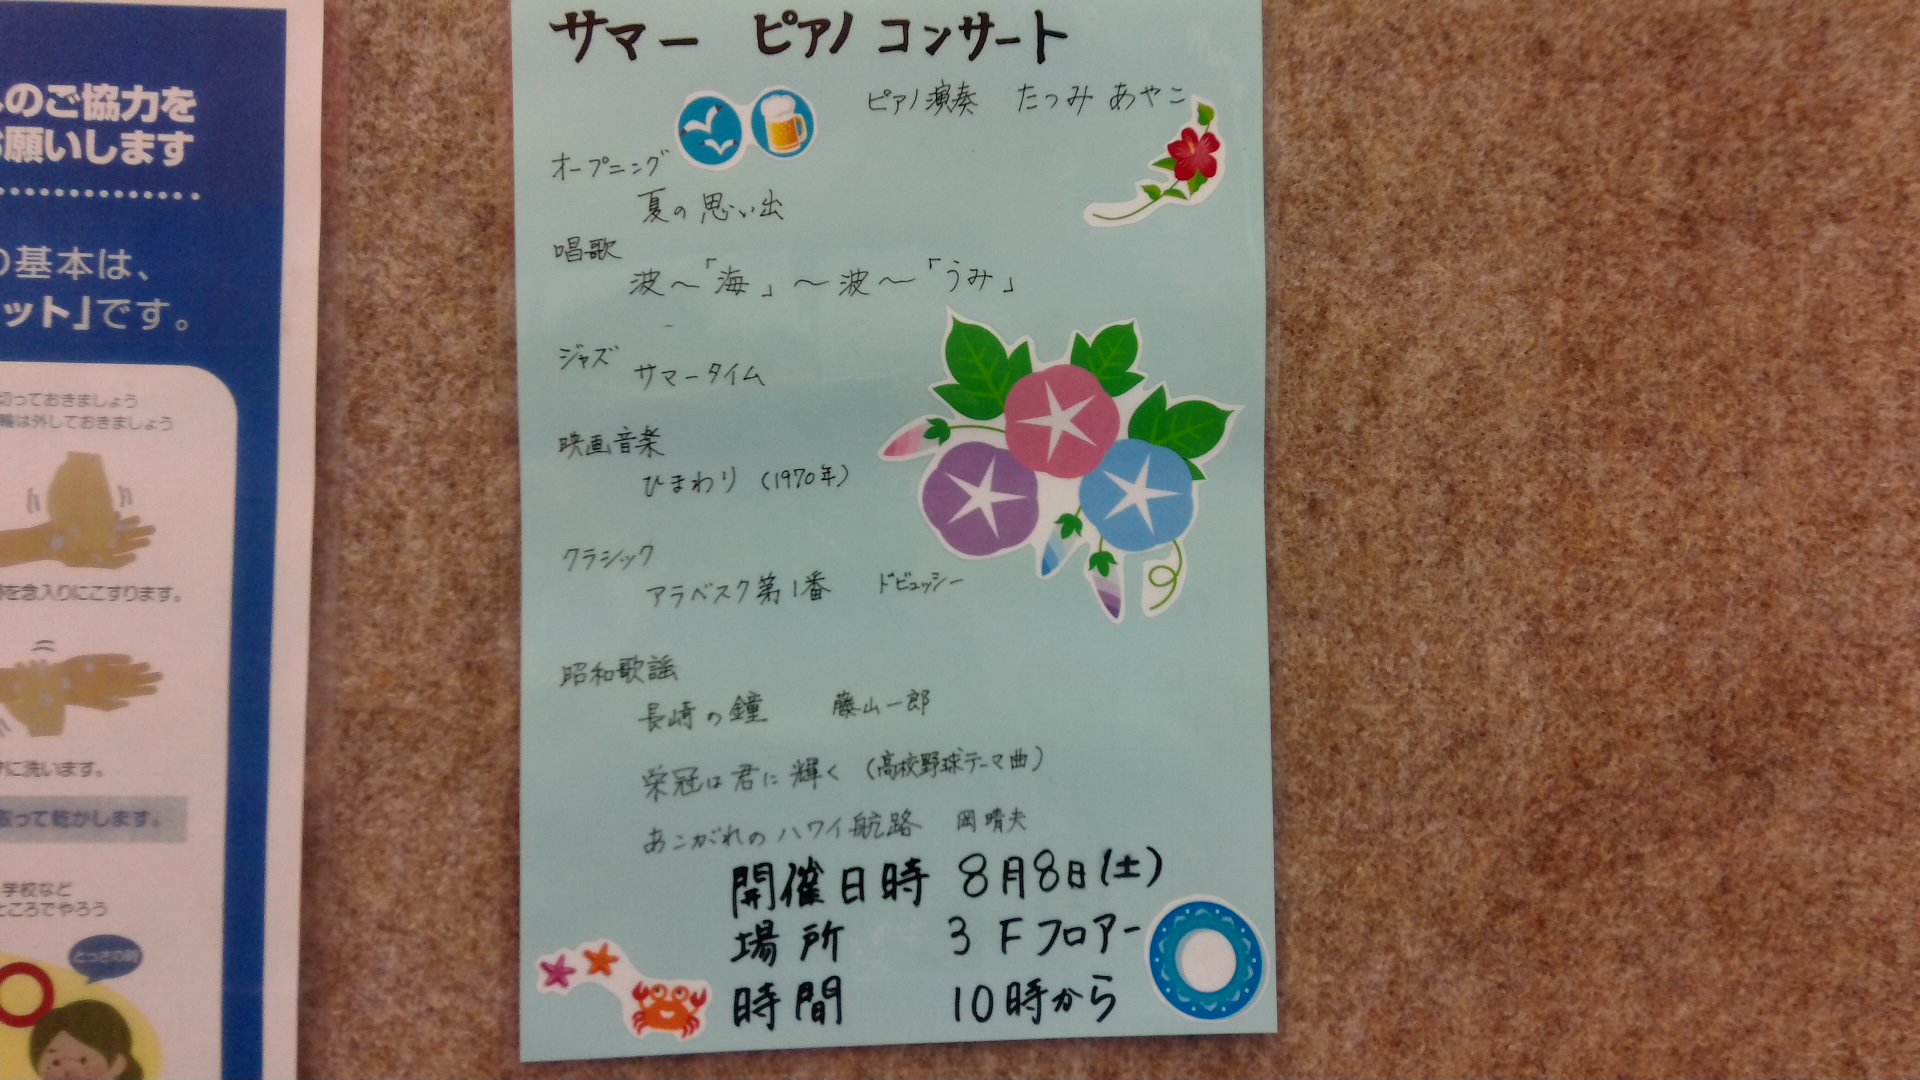 サマー ピアノ コンサート
ピアノ演奏 たつみ あやこ
オープニング
夏の思い出
唱歌
波〜「海」〜波〜「うみ」
ジャズ
サマータイム
映画音楽
ひまわり (1970年)
クラシック
アラベスク第1番 ドビュッシー
昭和歌謡
長崎の鐘 藤山一郎
栄冠は君に輝く (高校野球テーマ曲)
あこがれのハワイ航路 岡晴夫
開催日時 8月8日(土)
場所 3Fフロアー
時間 10時から
のご協力を
願いします
の基本は、
ット」です。
切っておきましょう
輪は外しておきましょう
を念入りにこすります。
に洗います。
取って乾かします。
学校など
ところでやろう
とっさの時